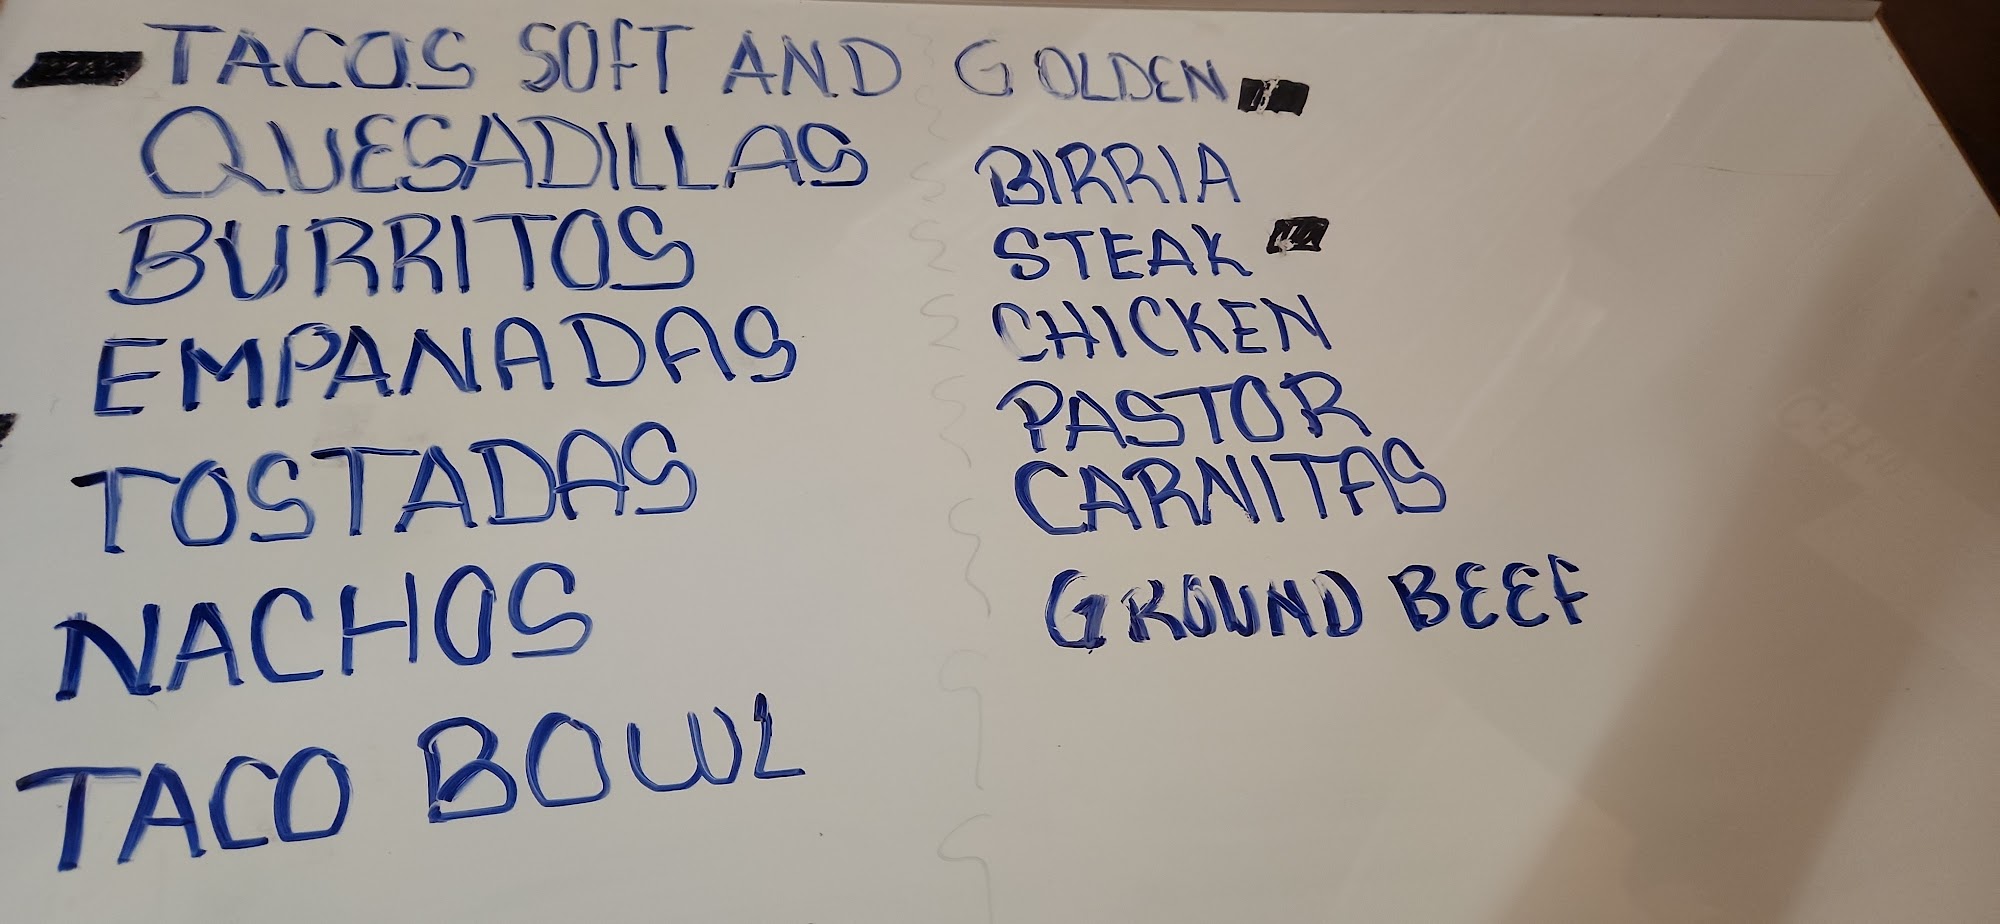 TACOS SOFT AND GOLDEN
QUESADILLAS
BURRITOS
EMPANADAS
TOSTADAS
NACHOS
TACO BOWL
BIRRIA
STEAK
CHICKEN
PASTOR
CARNITAS
GROUND BEEF